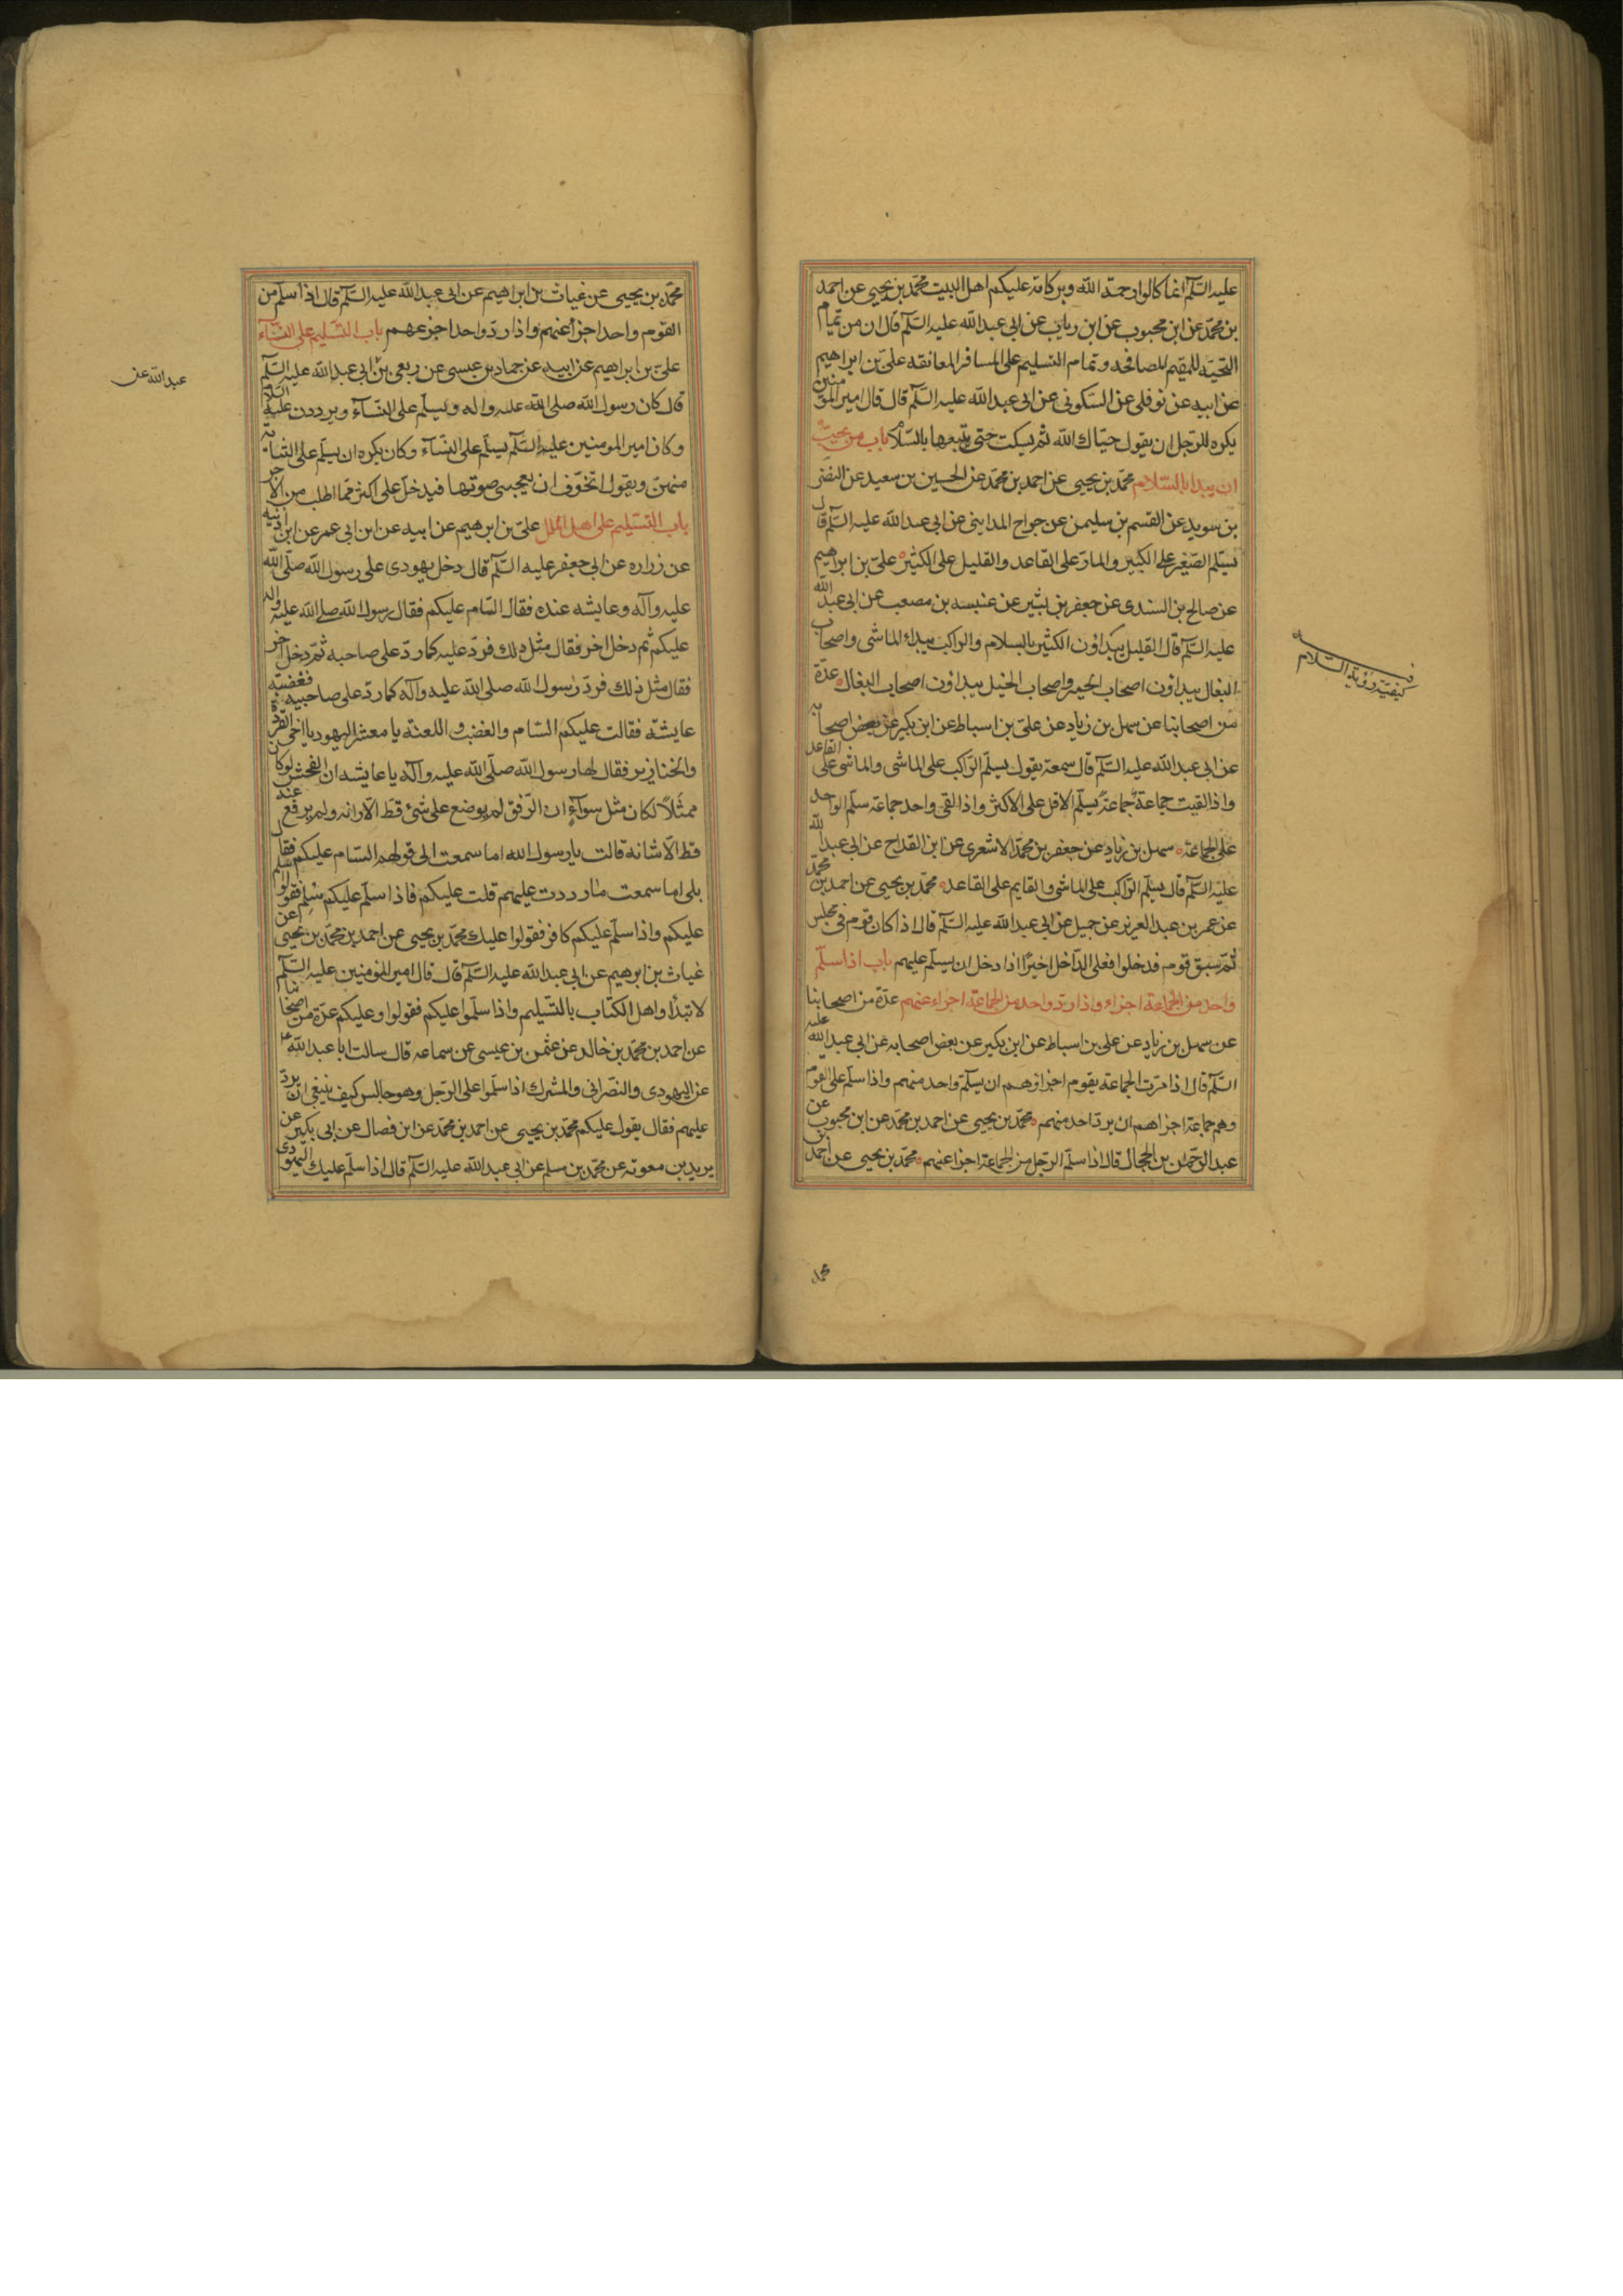 عليه السّلم انما كالوا رحمة الله وبركاته عليكم اهل البيت محمّد بن يحيى عن احمد
بن محمّد عن ابن محبوب عن ابن رياب عن ابى عبد الله عليه السّلم قال ان من تمام
التحيّة للمقيم المصافحه و تمام التسليم على المسافر المعانقه علىّ بن ابراهيم
عن ابيه عن نوفلى عن السّكونى عن ابى عبد الله عليه السّلم قال قال امير المؤمنين
يكره للرّجل ان يقول حيّاك الله ثم يسكت حتى يتبعها بالسّلام باب من يجب
ان يبدا بالسّلام محمّد بن يحيى عن احمد بن محمّد عن الحسين بن سعيد عن النضر
بن سويد عن القسم بن سليمن عن جراح المداينى عن ابى عبد الله عليه السّلم قال
يسلّم الصّغير على الكبير و المارّ على القاعد و القليل على الكثير علىّ بن ابراهيم
عن صالح بن السندى عن جعفر بن بشير عن عنبسه بن مصعب عن ابى عبد الله
عليه السّلم قال القليل يبداؤن الكثير بالسلام والراكب يبداء الماشى واصحاب
البغال يبداؤن اصحاب الحمير واصحاب الخيل يبداؤن اصحاب البغال عدّة
من اصحابنا عن سهل بن زياد عن علىّ بن اسباط عن ابن بكير عن بعض اصحابه
عن ابى عبد الله عليه السّلم قال سمعته يقول يسلّم الرّاكب على الماشى والماشى على القاعد
واذا لقيت جماعة جماعة يسلّم الاقل على الاكثر واذا لقى واحد جماعة سلّم الواحد
على الجماعة سهل بن زياد عن جعفر بن محمّد الاشعرى عن ابن القداح عن ابى عبد الله
عليه السّلم قال يسلّم الرّاكب على الماشى والقايم على القاعد محمّد بن يحيى عن احمد بن محمّد
عن عمر بن عبد العزيز عن جميل عن ابى عبد الله عليه السّلم قال اذا كان قوم فى مجلس
ثمّ سبق قوم فدخلوا فعلى الدّاخل اخيرًا اذا دخل ان يسلّم عليهم باب اذا سلّم
واحد من الجماعة اجزاء واذا ردّ واحد من الجماعة اجزاء عنهم عدّة من اصحابنا
عن سهل بن زياد عن على بن اسباط عن ابن بكير عن بعض اصحابه عن ابى عبد الله عليه
السّلم قال اذا مرّت الجماعة بقوم اجزاؤهم ان يسلّم واحد منهم واذا سلّم على القوم
وهم جماعة اجزاهم ان يردّ احد منهم محمّد بن يحيى عن احمد بن محمّد عن ابن محبوب عن
عبد الرّحمن بن الحجاج قال اذا سلّم الرّجل من الجماعة اجزا عنهم محمّد بن يحيى عن احمد بن
كيفيّة السّلام
محمد
محمّد بن يحيى عن غياث بن ابراهيم عن ابى عبد الله عليه السّلم قال اذا سلّم من
القوم واحد اجزا عنهم واذا ردّ واحد اجز عهم باب التسليم على النّساء
علىّ بن ابراهيم عن ابيه عن حماد بن عيسى عن ربعى بن ابى عبد الله عليه السّلم
قال كان رسول الله صلى الله عليه واله ويسلّم على النّساء ويرددن عليه السّلام
وكان امير المومنين عليه السّلم يسلّم على النّساء وكان يكره ان يسلّم على الشّابة
منهنّ ويقول اتخوّف ان يعجبنى صوتها فيدخل على اكثر ممّا اطلب من الاجر
باب التسليم على اهل الملل علىّ بن ابرهيم عن ابيه عن ابن ابى عمر عن ابن اذنيه
عن زراره عن ابى جعفر عليه السّلم قال دخل يهودى على رسول الله صلّى الله
عليه وآله وعايشه عنده فقال السّام عليكم فقال رسول الله صلى الله عليه واله
عليكم ثم دخل اخر فقال مثل ذلك فردّ عليه كما ردّ على صاحبه ثمّ دخل اخر
فقال مثل ذلك فردّ رسول الله صلى الله عليه وآله كما ردّ على صاحبيه فغضبت
عايشة فقالت عليكم السّام والغضب و اللعنة يا معشر اليهود يا اخى القردة
والخنازير فقال لها رسول الله صلّى الله عليه وآله يا عايشه ان الفحش لو كان
ممثّلاً لكان مثل سوآءٍ ان الرّفق لم يوضع على شئ قطّ الّا زانه ولم يرفع عنه
قط الّا شانه قالت يا رسول الله اما سمعت الى قولهم السّام عليكم فقال
بلى اما سمعت ما رددت عليهم قلت عليكم فاذا سلّم عليكم مسلم فقولوا السلم
عليكم واذا سلّم عليكم كافر فقولوا عليك محمّد بن يحيى عن احمد بن محمّد بن يحيى عن
غياث بن ابرهيم عن ابى عبد الله عليه السّلم قال قال امير المؤمنين عليه السّلم
لا تبدأوا اهل الكتاب بالتّسليم واذا سلّموا عليكم فقولوا وعليكم عدّة من اصحابنا
عن احمد بن محمّد بن خالد عن عثمن بن عيسى عن سماعه قال سالت ابا عبد الله ع
عن اليهودى والنصرانى والمشرك اذا سلّموا على الرّجل وهو جالس كيف ينبغى ان يردّ
عليهم فقال يقول عليكم محمّد بن يحيى عن احمد بن محمّد عن ابن فضال عن ابى بكير عن
يريد بن معوية عن محمّد بن سلم عن ابى عبد الله عليه السّلم قال اذا سلّم عليك اليهودى
عبد الله عن